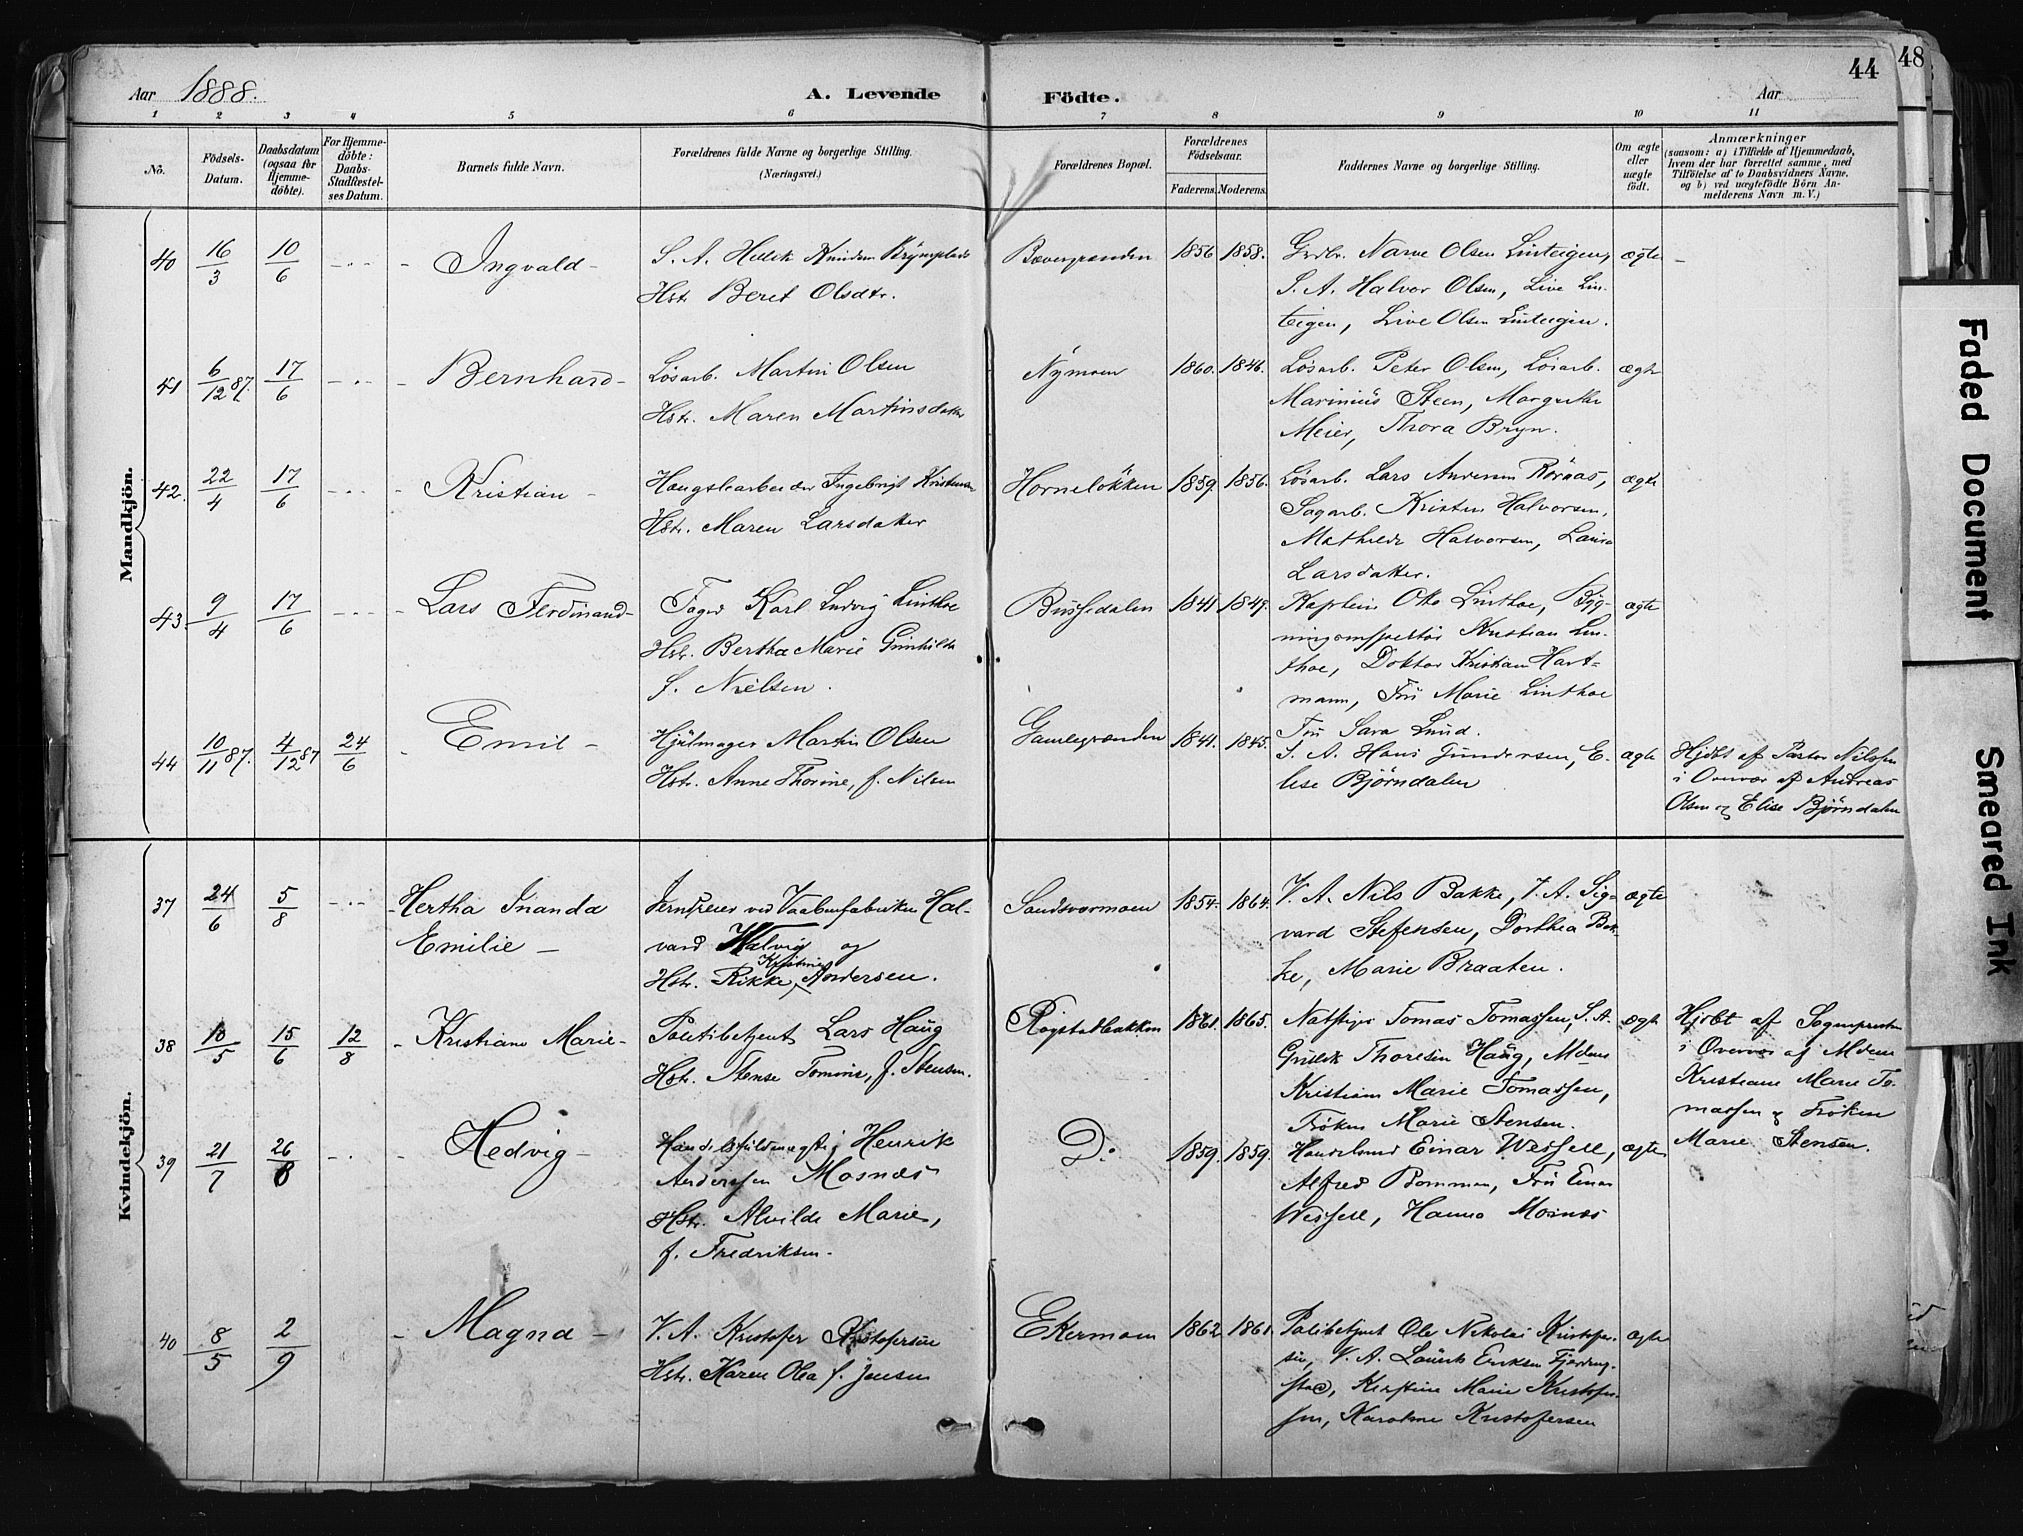 Aar 1888.
A. Levende Födte.
Aar
44
48
1 2 3 4 5 6 7 8 9 10 11
No.
Födsels-
Datum.
Daabsdatum
(ogsaa for
Hjemme-
döbte).
For Hjemme-
döbte:
Daabs-
Stadfæstel-
ses Datum.
Barnets fulde Navn.
Forældrenes fulde Navne og borgerlige Stilling.
(Næringsvei.)
Forældrenes Bopæl.
Forældrenes
Födselsaar.
Faderens. Moderens.
Faddernes Navne og borgerlige Stilling.
Om ægte
eller
uægte
födt.
Anmærkninger
(saasom: a) i Tilfælde af Hjemmedaab,
hvem der har forrettet samme, med
Tilföielse af to Daabsvidners Navne.
og b) ved uægtefödte Börn An-
melderens Navn m. V.)
Mandkjön.
40 16/3 10/6 Ingvald
S. A. Knudsen
Hstr. Beret Olsdtr.
Bævergrænden 1856 1858.
Grdbr. Narve Olsen Linteigen,
S. A. Halvor Olsen, Live Lin-
teigen, Live Olsen Linteigen.
ægte
41 6/12 87. 17/6 Bernhard
Løsarb. Martin Olsen
Hstr. Maren Martinsdatter
Nymoen 1860. 1846.
Løsarb. Peter Olsen, Løsarb.
Marinius Steen, Margrethe
Meier, Thora Bryn.
ægte
42. 22/4 17/6 Kristian
Ingebrigt Kristensen
Hstr. Maren Larsdatter
Horneløkken 1859. 1856.
Løsarb. Lars Andersen Röraas,
Sagarb. Kristen Halvorsen,
Mathilde Halvorsen, Laura
Larsdatter.
ægte
43. 9/4 17/6 Lars Ferdinand
Foged Karl Ludvig Linthoe
Hstr. Bertha Marie Gunhilde
f. Nielsen.
Bussedalen 1841 1849.
Kaptein Otto Linthoe, Byg-
ningsinspektör Kristian Lin-
thoe, Doktor Kristian Hart-
mann, Fru Marie Linthoe
Fru Sara Lund.
ægte
44 10/11 87. 4/12 87 24/6 Emil
Hjulmager Martin Olsen
Hstr. Anne Thorine, f. Nilsen
Gamlegrænden 1841. 1845.
S. A. Hans Gundersen, E-
lise Björndalen
ægte
Hjdbt af Pastor Nilssen
i Overvær af Andreas
Olsen og Elise Björndalen
Kvindekjön.
37 24/6 5/8 Hertha Inanda
Emilie
Jerndreier ved Vaabenfabriken Hal-
vard Walvig og
Hstr. Rikke Kristine Andersen.
Sandsværmoen 1854. 1864.
V. A. Nils Bakke, V. A. Sig-
vard Stefensen, Dorthea Bak-
ke, Marie Braaten.
ægte
38 10/5 15/6 12/8 Kristiane Marie
Politibetjent Lars Haug
Hstr. Stense Tomine, f. Stensen.
Rogstadbakken 1861. 1865.
Tomas Tomassen, S. A.
Thoresen Haug, Mdme
Kristiane Marie Tomassen,
Fröken Marie Stensen.
ægte
Hjdbt af Sogneprsten
i Overvær af Mdme
Kristiane Marie To-
massen og Fröken
Marie Stensen.
39 21/7 26/8 Hedvig
Handelsfuldmægtig Henrik
Anderssen Mosnæs
Hstr. Alvilde Marie,
f. Fredriksen.
Do. 1859. 1859.
Handelsmd Einar Wessell,
Alfred Bomman, Fru Einar
Wessell, Hanna Mosnæs
ægte
40 8/5 2/9 Magna
V. A. Kristofer Kristofersen
Hstr. Karen Olea f. Jensen
Ekermoen 1862 1861
Politibetjent Ole Nikolai Kristofer-
sen, V. A. Lauritz Eriksen Fjerding-
stad, Kirstine Marie Kristofer-
sen, Karoline Kristofersen
ægte
Faded Document
Smeared Ink